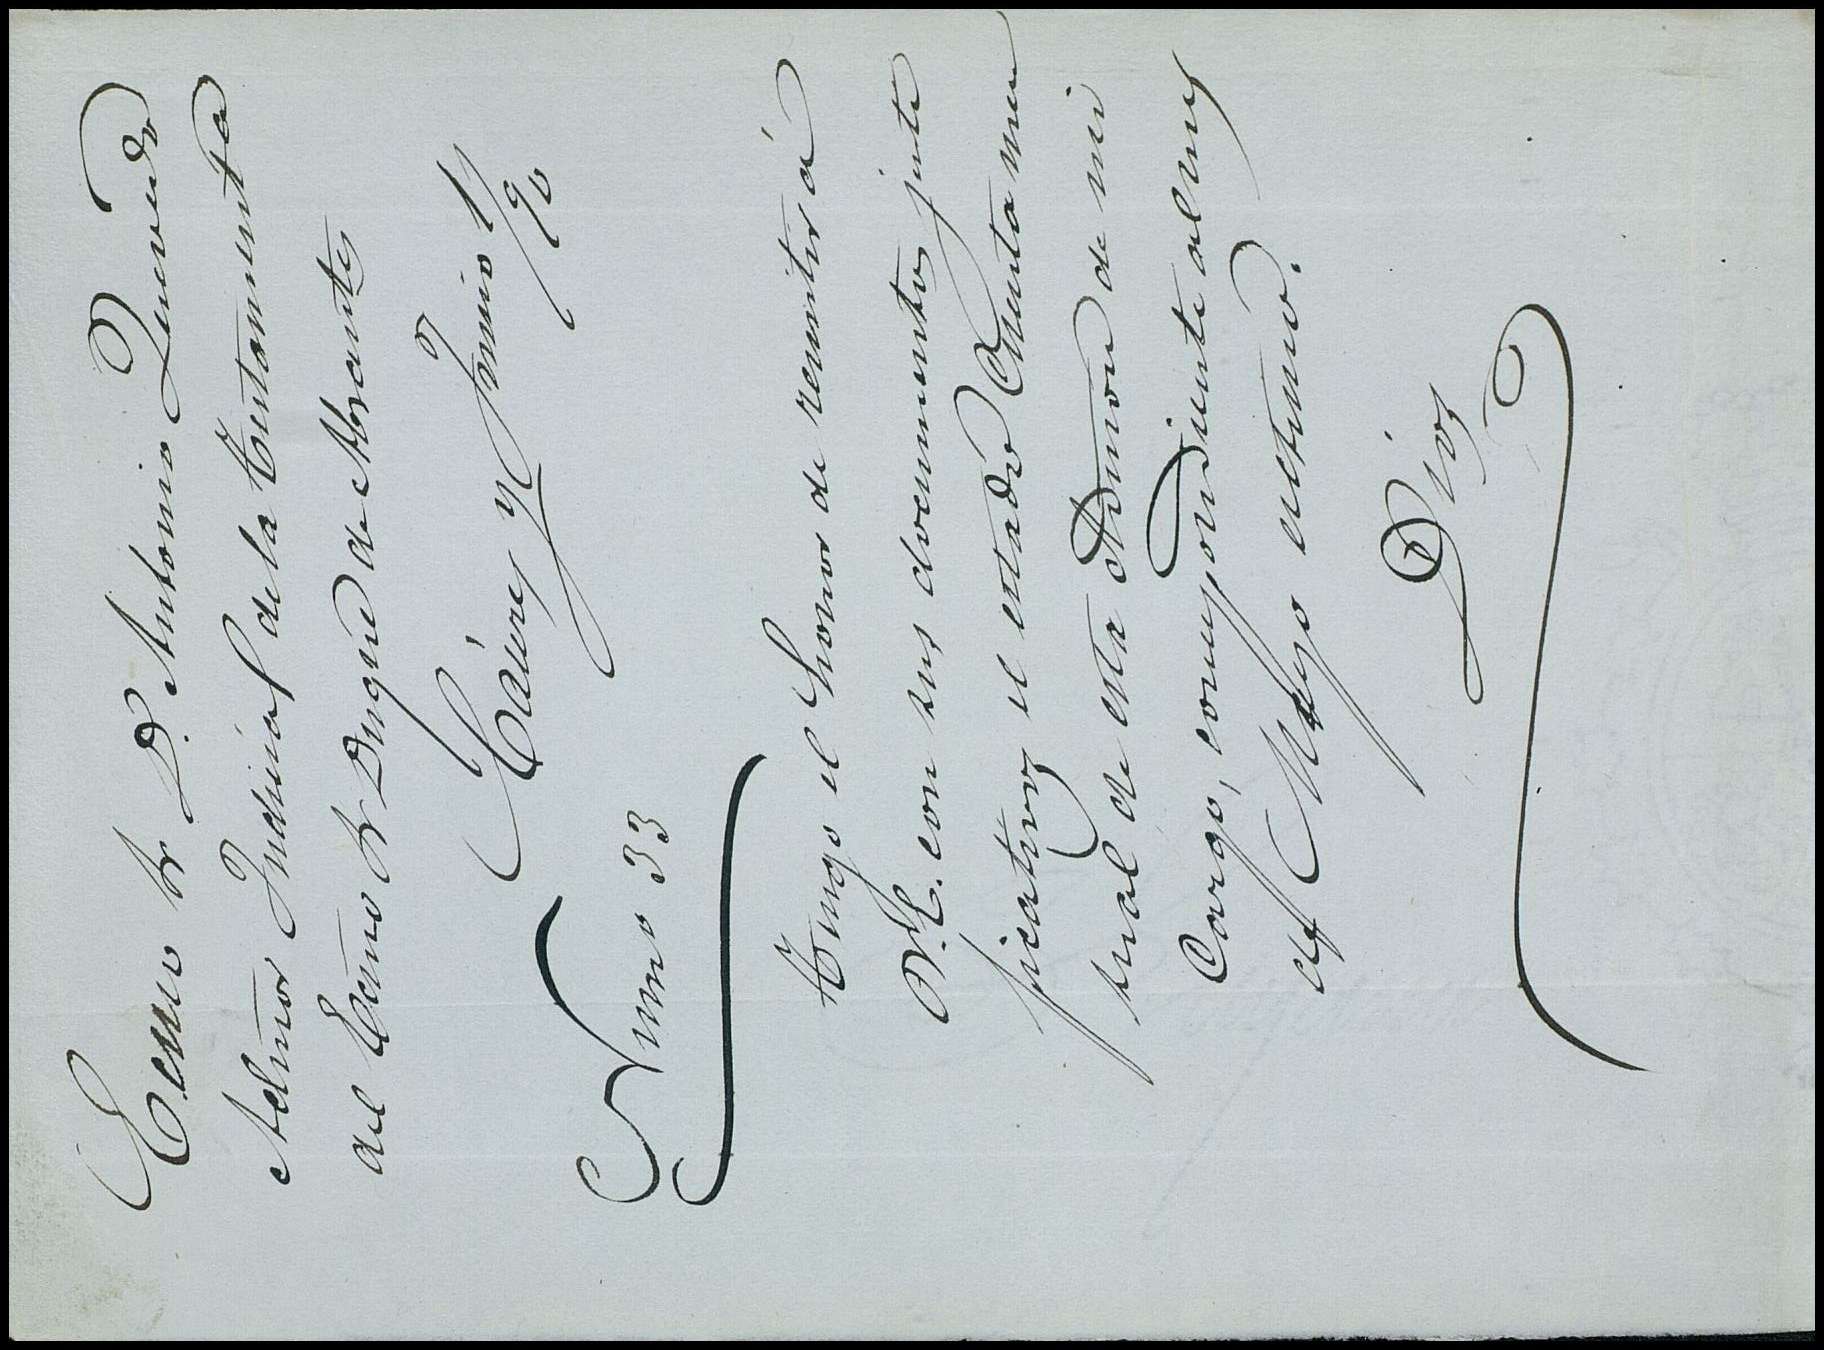 Ecmo Sr D. Antonio Quevedo
Admor Judicial de la Testamentª
del Ecmo Sr Duque de Abrantes
Cáceres y Junio 1/90
Num 33
Tengo el honor de remitir á
V.E. con sus documentos justi
ficativos el estado Cuenta men
sual de esta Admon de mi
Cargo, correspondiente al mes
de Mayo ultimo.
Dios